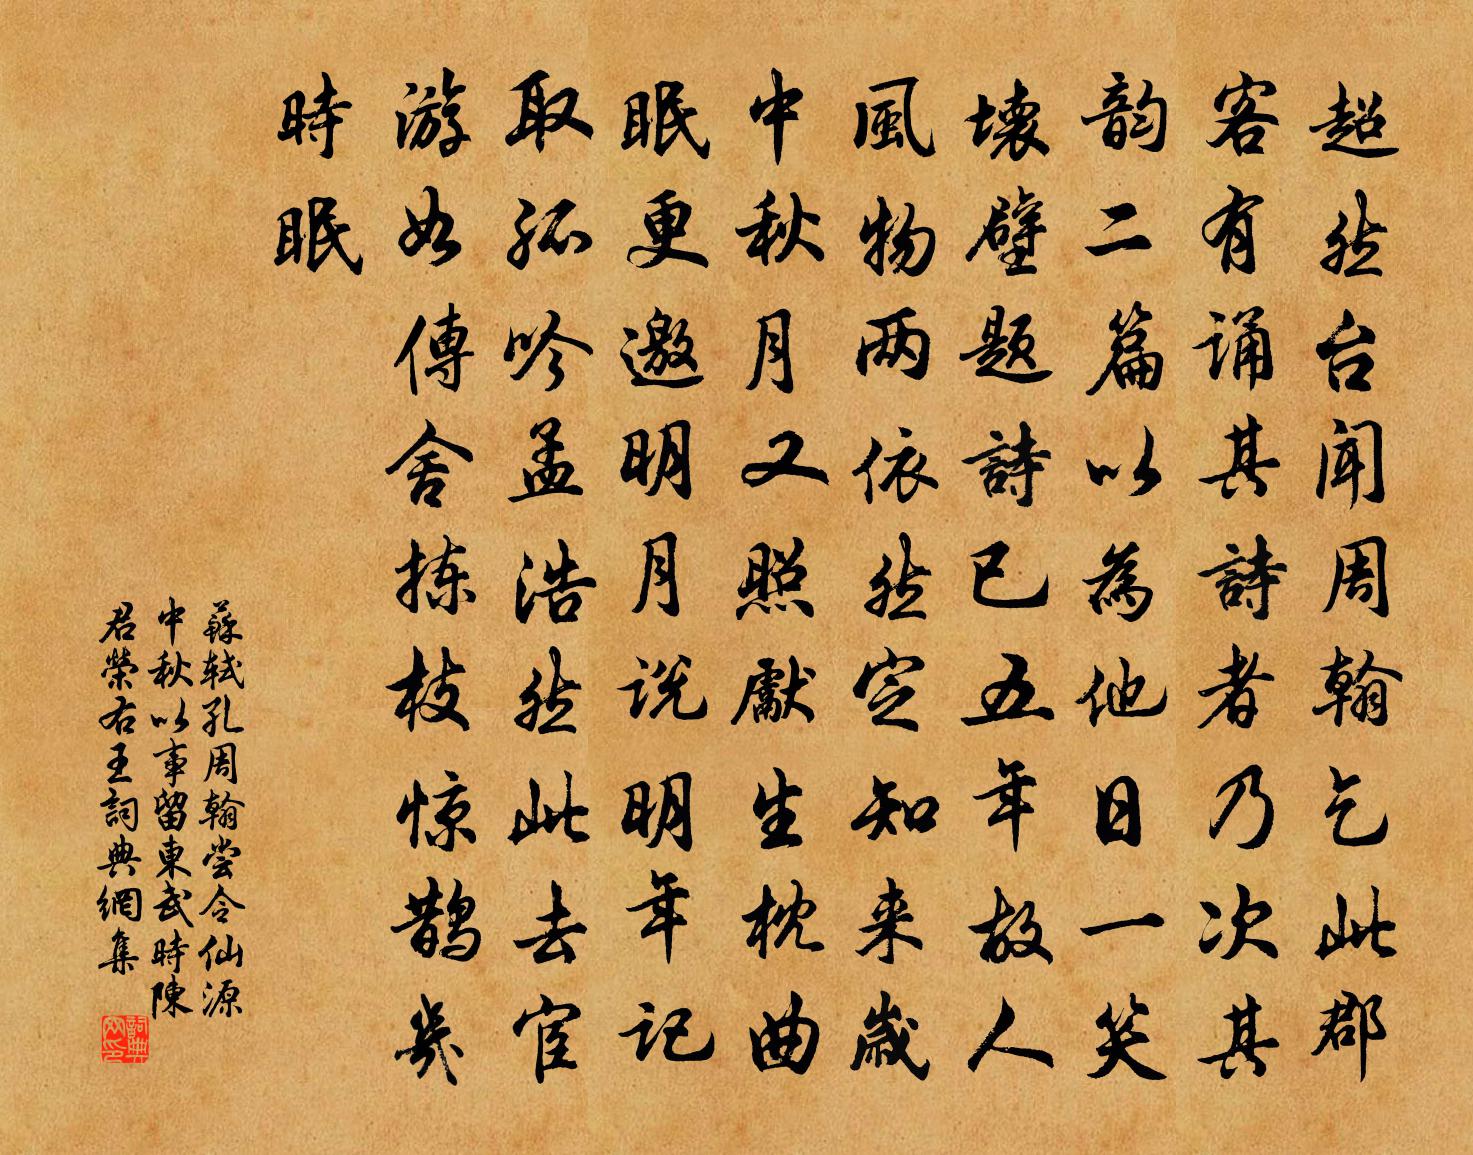 超然台聞周翰乞此郡
客有诵其詩者乃次其
韵二篇以為他日一笑
壞壁题詩已五年故人
風物两依然定知来歲
中秋月又照獻生枕曲
眠更邀明月说明年记
取孤吟孟浩然此去宦
游如傳舍拣枝惊鹊幾
時眠
蘇轼孔周翰尝令仙源
中秋以事留東武時陳
君榮右王詞典網集
詞典
网印